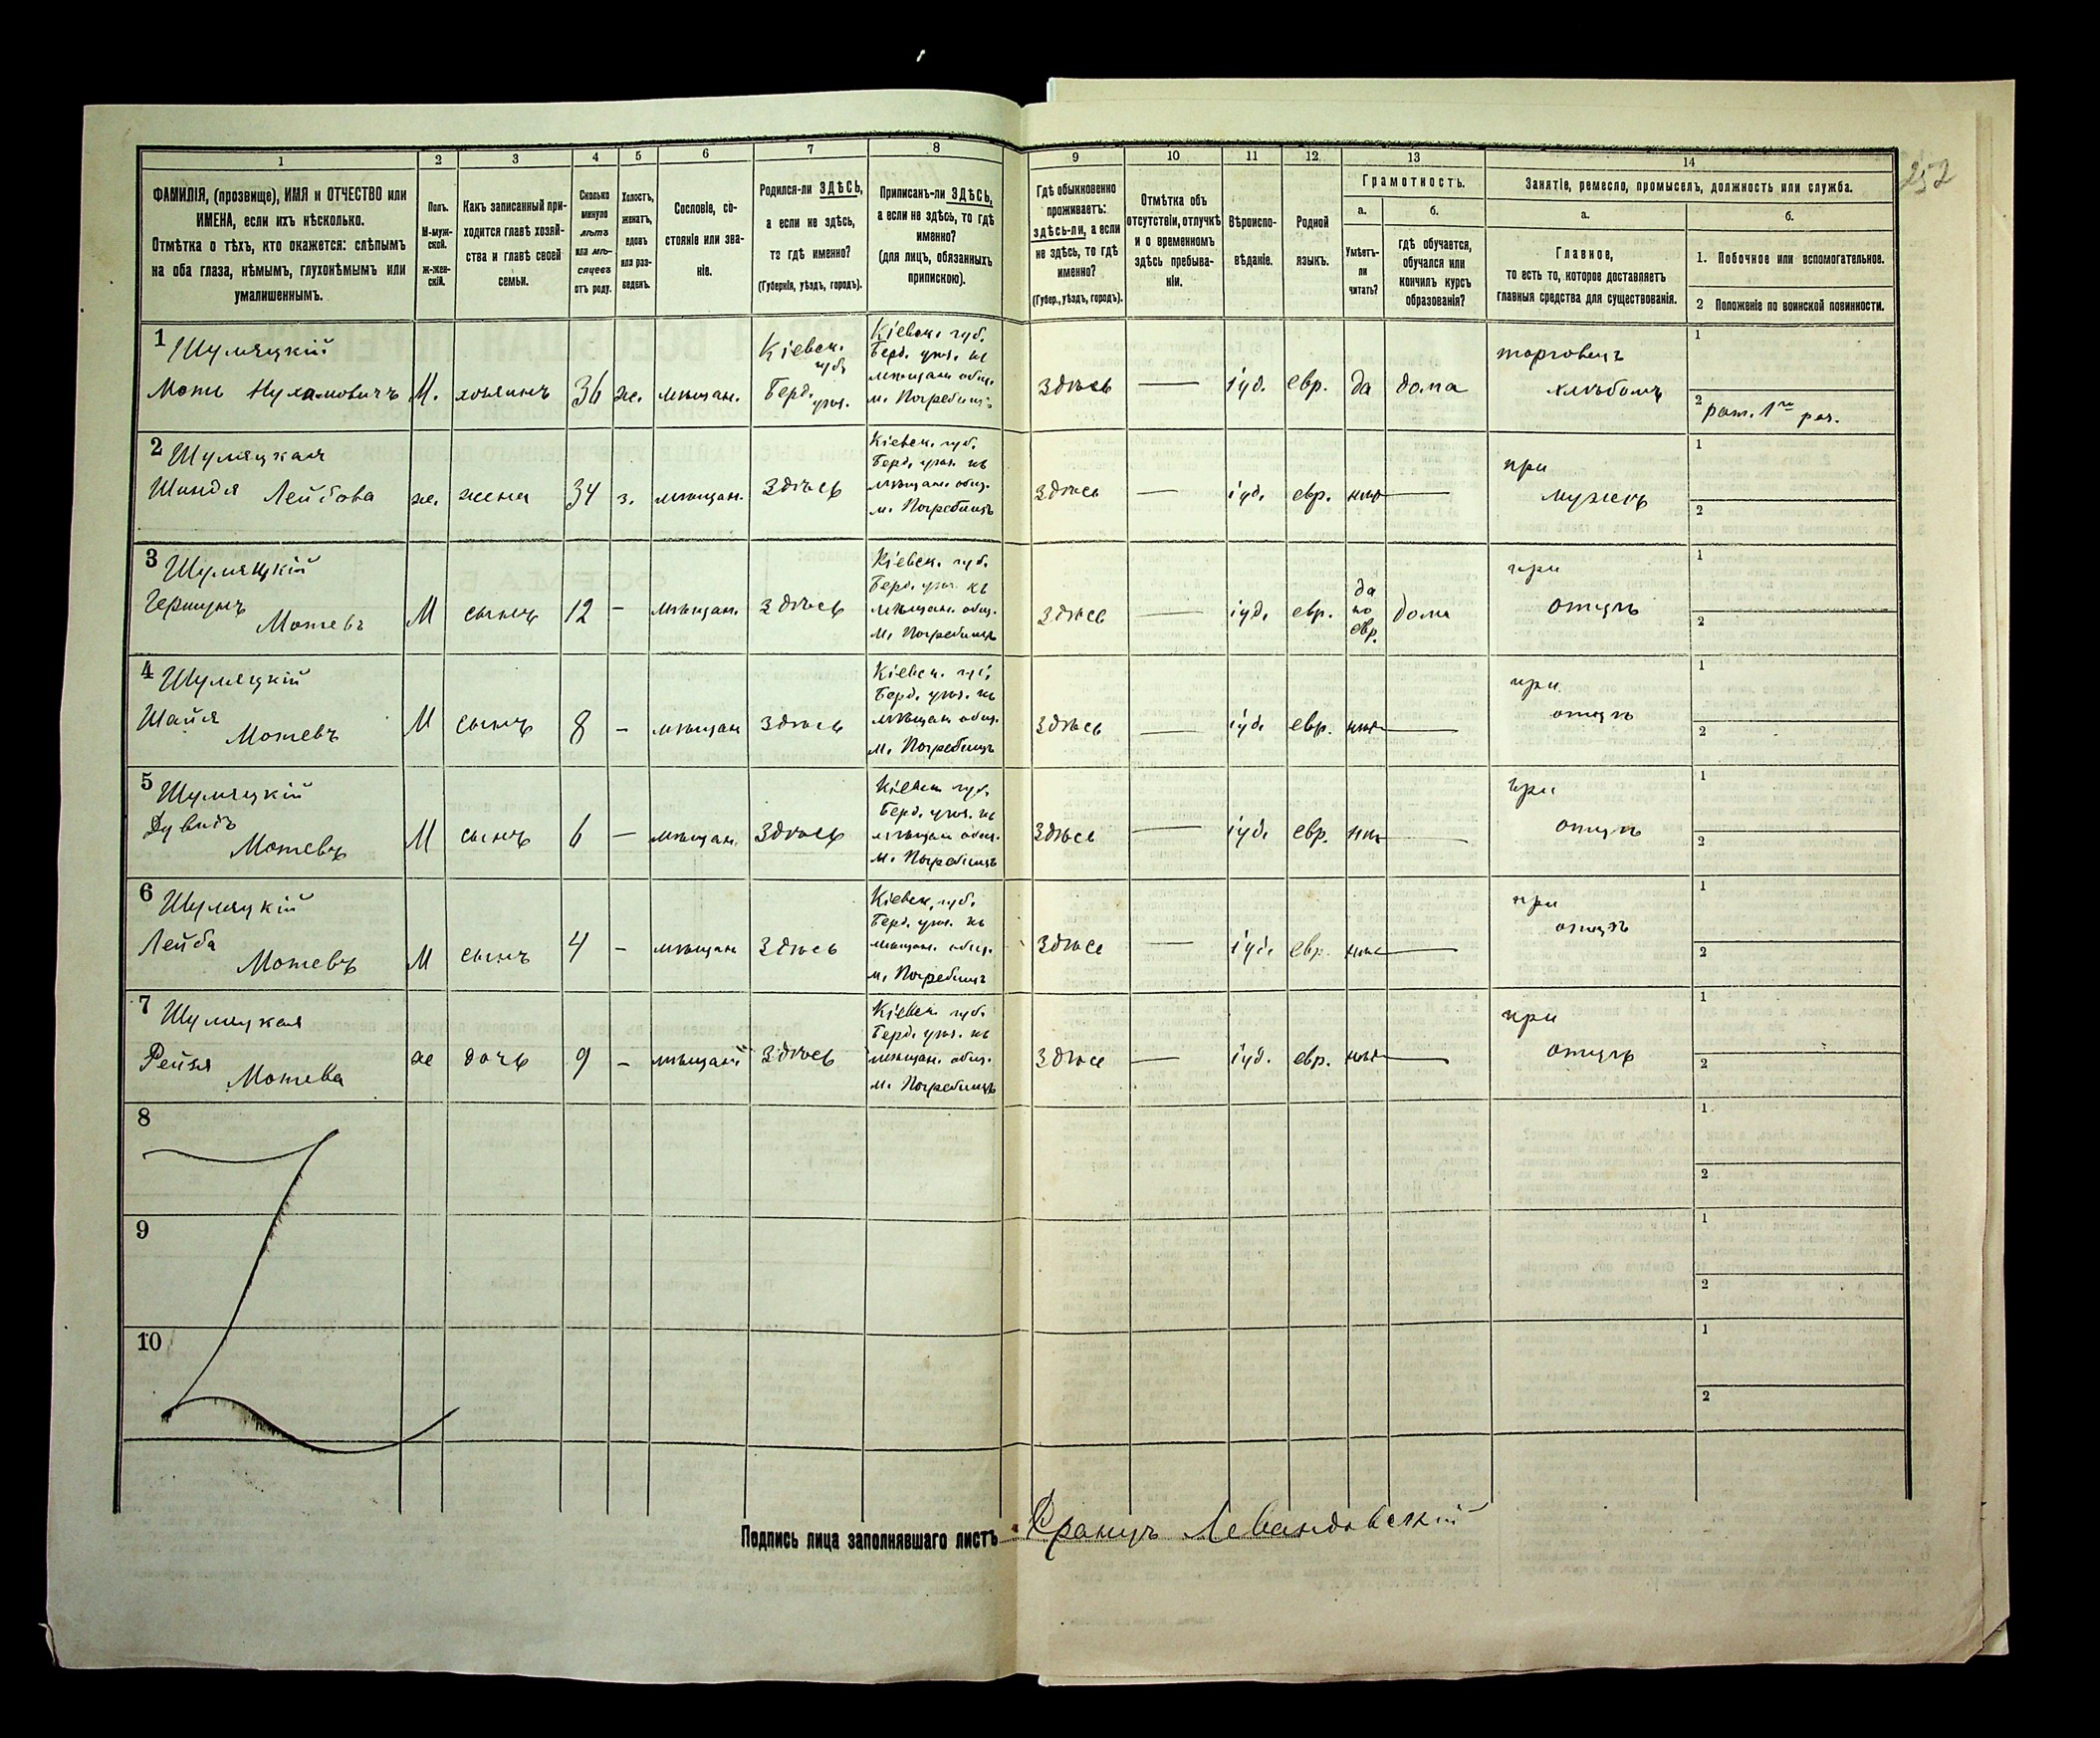 1 2 3 4 5 6 7 8 9 10 11 12 13 14
252
ФАМИЛІЯ, (прозвище), ИМЯ и ОТЧЕСТВО или
ИМЕНА, если ихъ нѣсколько.
Отмѣтка о тѣхъ, кто окажется: слѣпымъ
на оба глаза, нѣмымъ, глухонѣмымъ или
умалишеннымъ.
Полъ.
М-муж-
ской.
Ж-жен-
скій.
Какъ записанный при-
ходится главѣ хозяй-
ства и главѣ своей
семьи.
Сколько
минуло
лѣтъ
или мѣ-
сяцевъ
отъ роду.
Холостъ,
женатъ,
вдовъ
или раз-
веденъ.
Сословіе, со-
стояніе или зва-
ніе.
Родился-ли ЗДѢСЬ,
а если не здѣсь,
то гдѣ именно?
(Губернія, уѣздъ, городъ).
Приписанъ-ли ЗДѢСЬ,
а если не здѣсь, то гдѣ
именно?
(для лицъ, обязанныхъ
припискою).
Гдѣ обыкновенно
проживаетъ:
здѣсь-ли, а если
не здѣсь, то гдѣ
именно?
(Губер., уѣздъ, городъ).
Отмѣтка объ
отсутствіи, отлучкѣ
и о временномъ
здѣсь пребыва-
ніи.
Вѣроиспо-
вѣданіе.
Родной
языкъ.
Грамотность.
а.
Умѣетъ-
ли
читать?
б.
гдѣ обучается,
обучался или
кончилъ курсъ
образованія?
Занятіе, ремесло, промыселъ, должность или служба.
а.
Главное,
то есть то, которое доставляетъ
главныя средства для существованія.
б.
1. Побочное или вспомогательное.
2 Положеніе по воинской повинности.
1 Шумяцкій
Моть Нухимовичъ
М.
хозяинъ
36
ж.
мѣщан.
Кіевск.
губ.
Берд.
уѣз.
Кіевск. губ.
Берд. уѣз. къ
мѣщан. общ.
м. Погребищ.
здѣсь
—
іуд.
евр.
да
дома
торговецъ
хлѣбомъ
1
2 рат. 1го раз.
2 Шумяцкая
Шиндля Лейбова
ж.
жена
34
з.
мѣщан.
Здѣсь
Кіевск. губ.
Берд. уѣз. къ
мѣщан. общ.
м. Погребищъ
здѣсь
—
іуд.
евр.
нѣт —
при
мужѣ
1
2
3 Шумяцкій
Гершунъ
Мотевъ
М
сынъ
12
–
мѣщан.
здѣсь
Кіевск. губ.
Берд. уѣз. къ
мѣщан. общ.
м. Погребищъ
здѣсь
—
іуд.
евр.
да
по
евр.
дома
при
отцѣ
1
2
4 Шумяцкій
Шайя
Мотевъ
М
сынъ
8
–
мѣщан
здѣсь
Кіевск. губ.
Берд. уѣз. къ
мѣщан общ.
м. Погребищъ
здѣсь
—
іуд.
евр.
нѣт —
при
отцѣ
1
2
5 Шумяцкій
Дувидъ
Мотевъ
М
сынъ
6
–
мѣщан.
здѣсь
Кіевск губ.
Берд. уѣз. къ
мѣщан общ.
м. Погребищъ
здѣсь
—
іуд.
евр.
нѣт —
при
отцѣ
1
2
6 Шумяцкій
Лейба
Мотевъ
М
сынъ
4
–
мѣщан
здѣсь
Кіевск. губ.
Берд. уѣз. къ
мѣщан. общ.
м. Погребищъ
здѣсь
—
іуд.
евр.
нѣт —
при
отцѣ
1
2
7 Шумяцкая
Рейзя
Мотева
ж
дочь
9
–
мѣщан
здѣсь
Кіевск губ.
Берд. уѣз. къ
мѣщан. общ.
м. Погребищъ
здѣсь
—
іуд.
евр.
нѣт —
при
отцѣ
1
2
8
1
2
9
1
2
10
1
2
Подпись лица заполнявшаго листъ Францъ Левандовскій